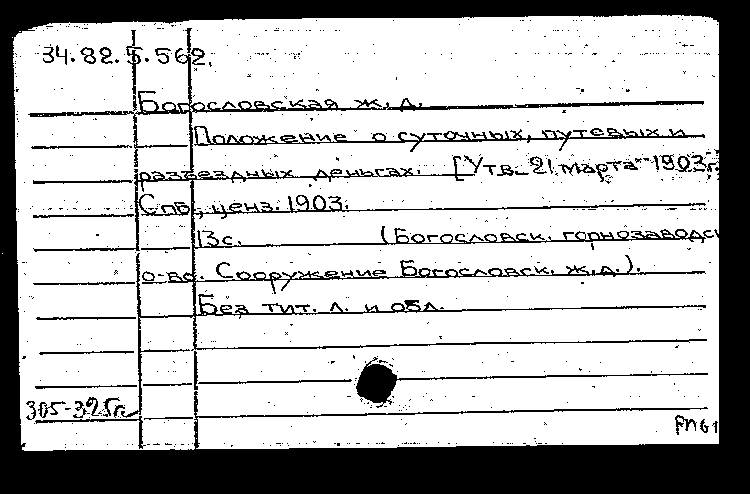 34.82.5.562.
Богословская ж.д.
Положение о суточных, путевых и
разъездных деньгах. [Утв. 21 марта 1903г.
Спб., ценз. 1903.
13с. (Богословск. горнозаводс
о-во. Сооружение Богословск. ж.д.).
Без тит. л. и обл.
305-325г